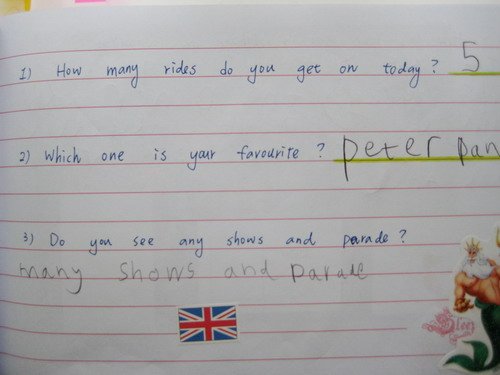 1) How many rides do you get on today? 5
2) Which one is your favourite? peter pan
3) Do you see any shows and parade?
many shows and parade